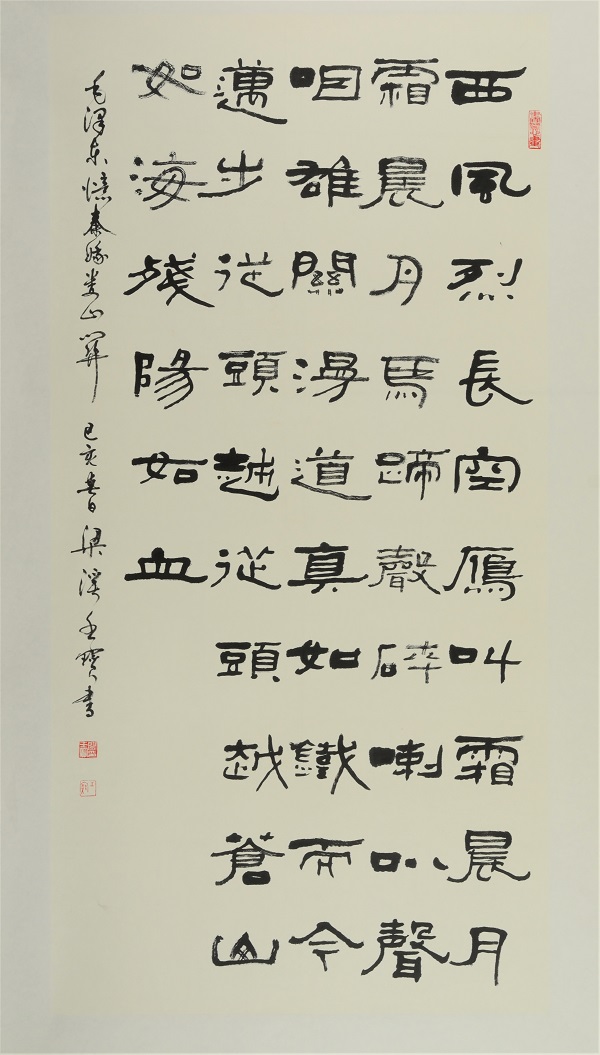 西風烈長空鴈叫霜晨月
霜晨月馬蹄聲碎喇叭聲
咽雄關漫道真如鐵而今
邁步從頭越從頭越蒼山
如海殘陽如血
毛澤東憶秦娥婁山關 己亥春日梁溪寶書